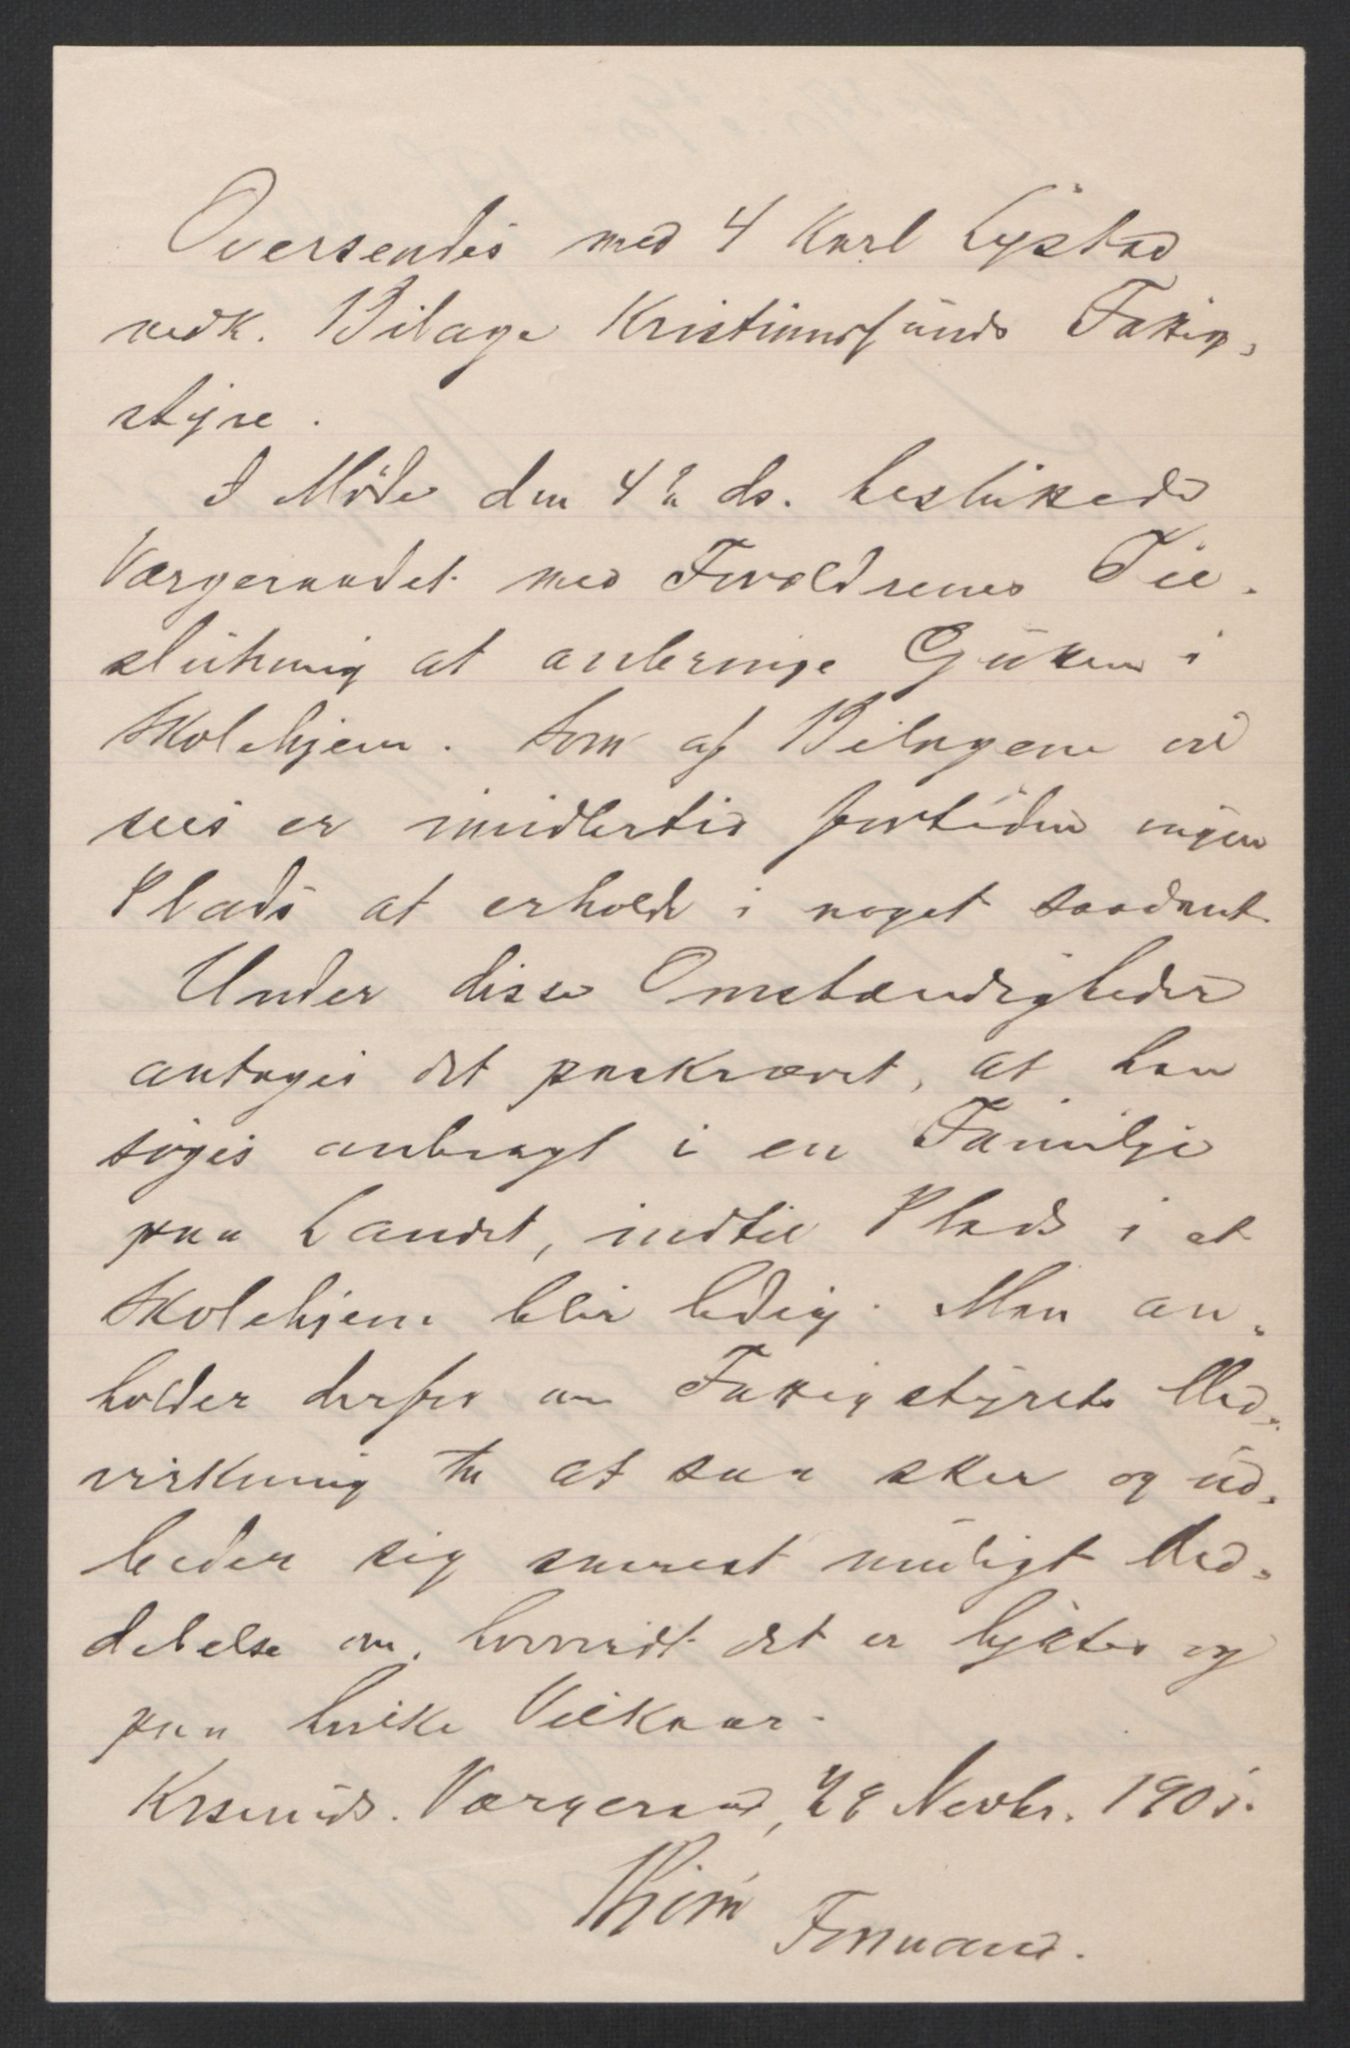 Oversendes med 4 Karl Lystad
vedk. Bilage Kristianssunds Fattig-
styre.
I Møde den 4de ds. besluttede
Værgeraadet med Forældrenes Til-
slutning at anbringe Gutten i
Skolehjem. Som af Bilagene vil
sees er imidlertid fortiden ingen
Plads at erholde i noget saadant
Under disse Omstændigheder
antages det paakrævet, at han
søges anbragt i en Familje
paa Landet, indtil Plads i et
Skolehjem blir ledig. Man an-
holder derfor om Fattigstyrets Med-
virkning til at saa sker og ud-
beder sig snarest muligt Med-
delelse om, hvorvidt det er lykkes og
paa hvilke Vilkaar.
Krsunds. Værgeraad, 28 Novbr. 1905.
Formand.